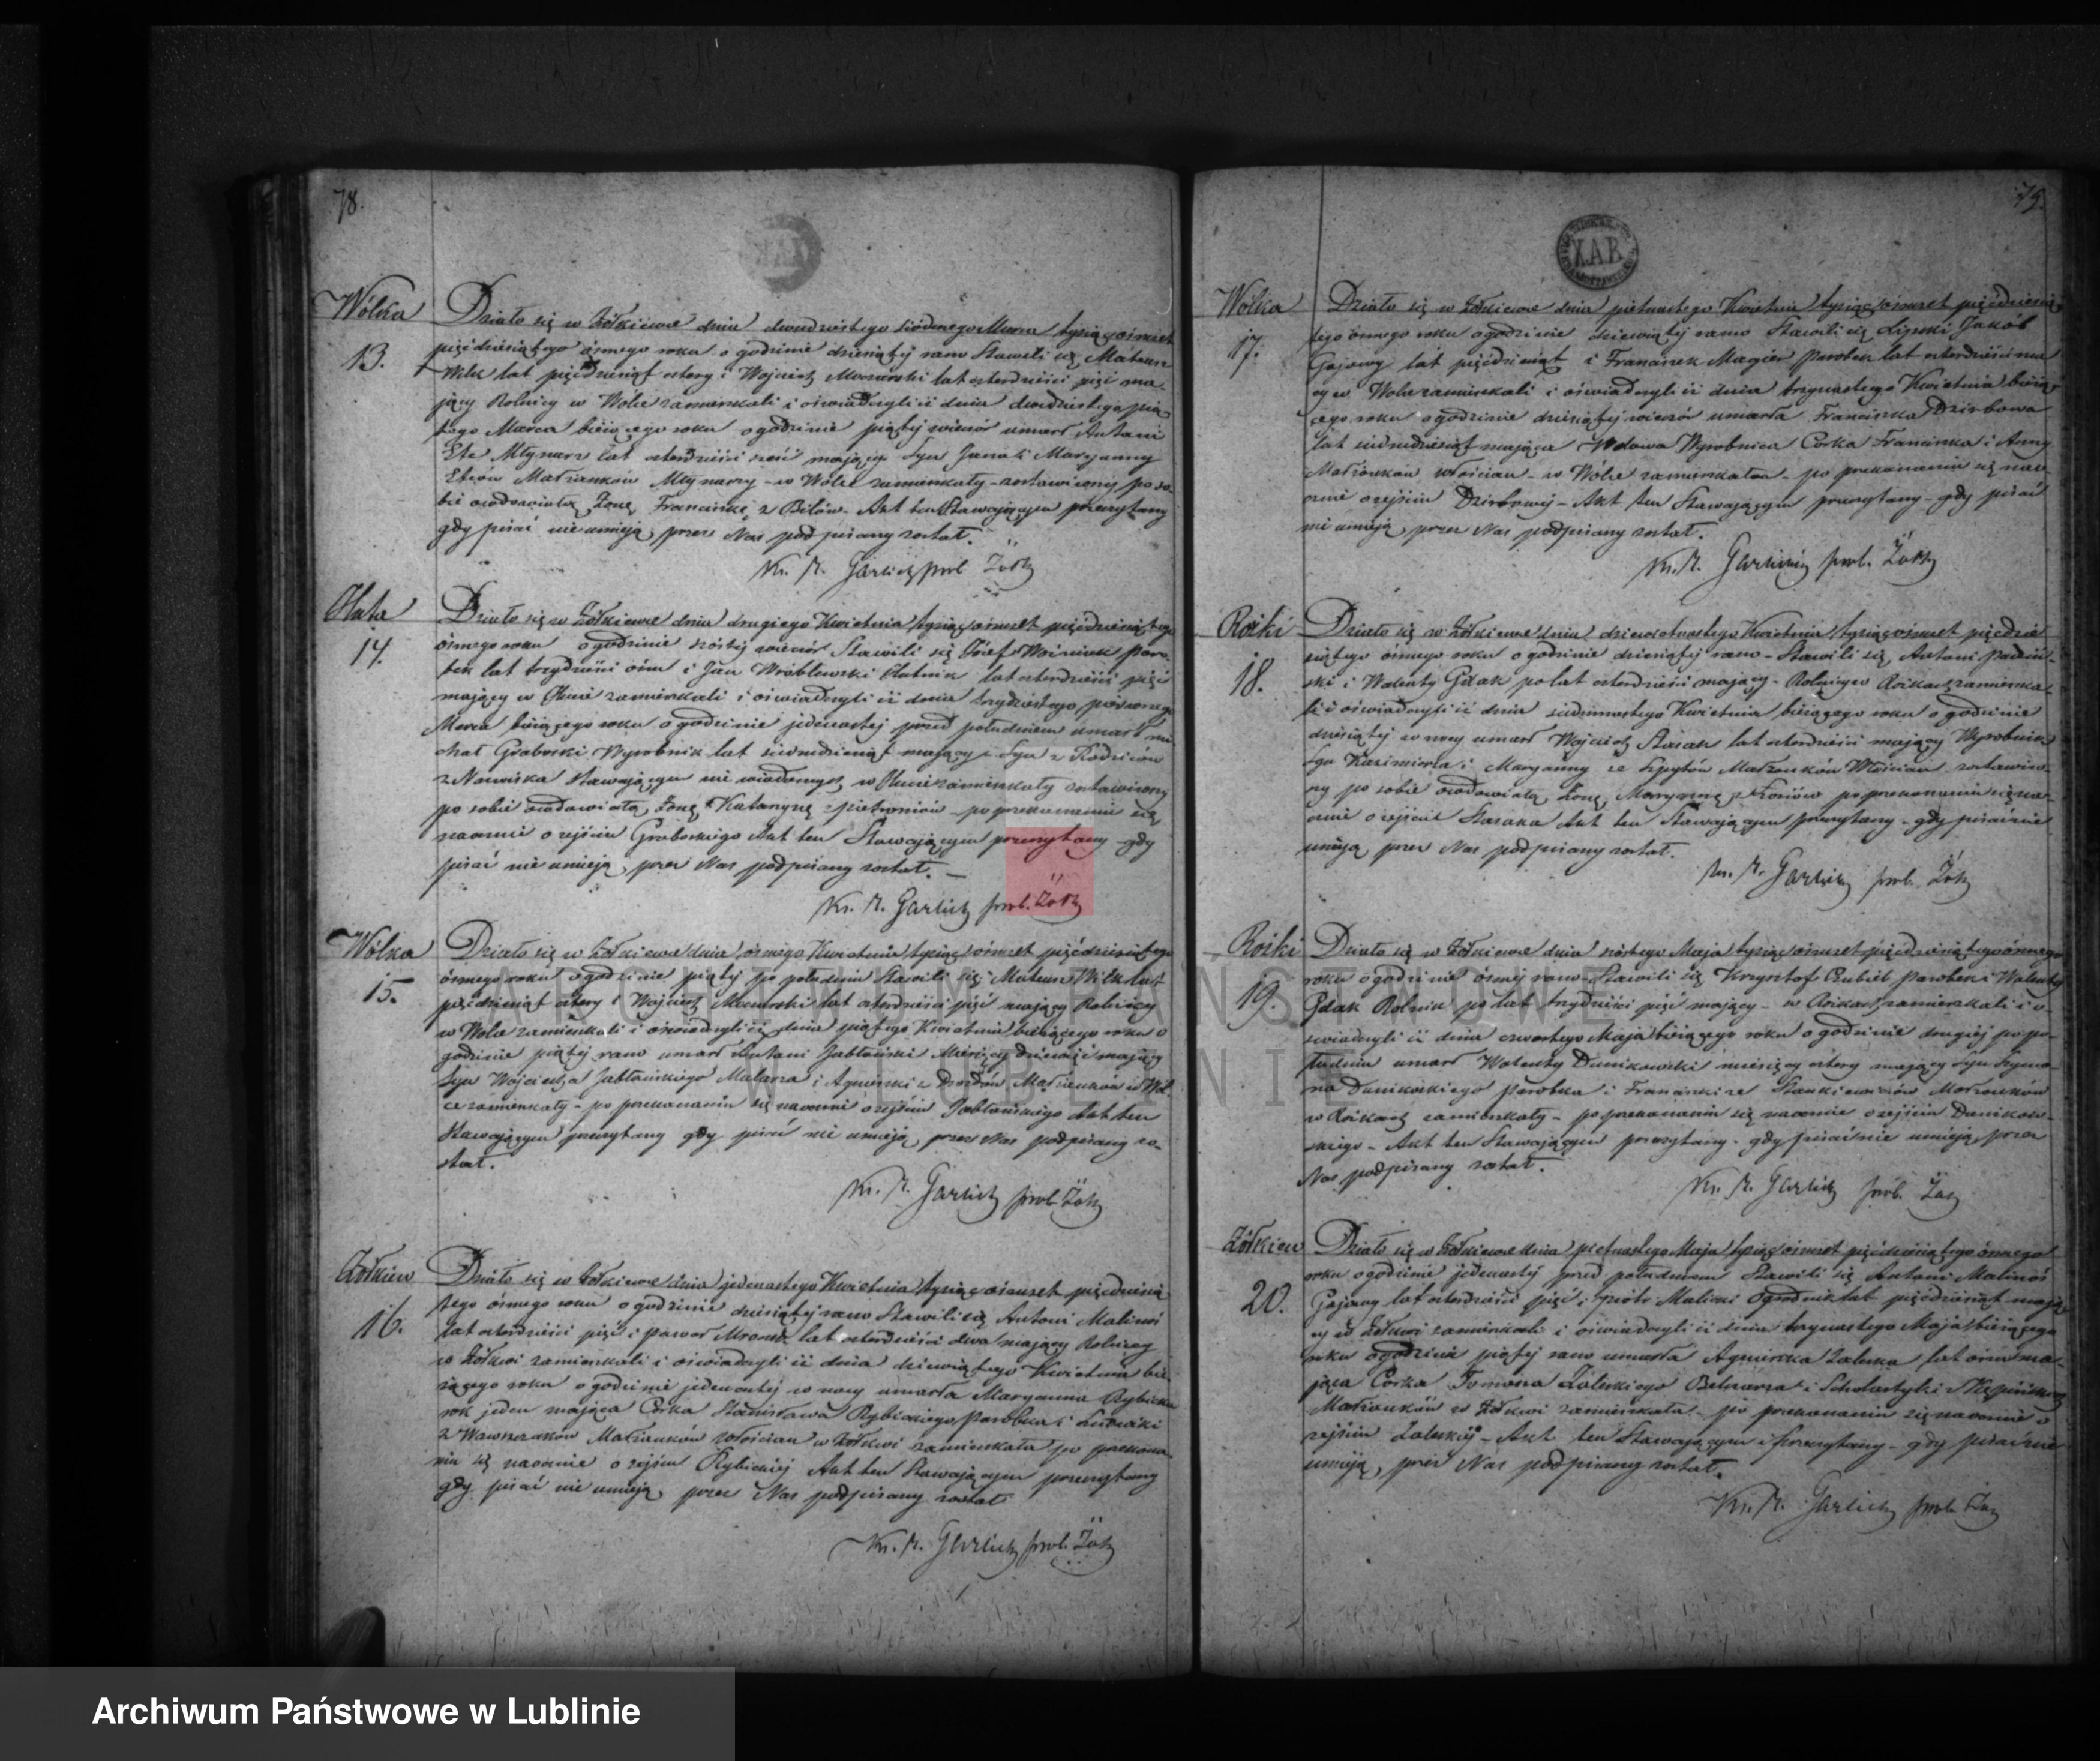 78.
Wólka
13.
Działo się w Żółkiewce dnia dwudziestego siódmego Marca tysiąc ośmset
pięćdziesiątego ósmego roku o godzinie dziesiątej rano Stawili się Mateusz
Wilk lat pięćdziesiąt cztery i Wojciech Mazurski lat czterdzieści pięć ma-
jący Rolnicy w Wólce zamieszkali i oświadczyli iż dnia dwudziestego pią-
tego Marca bieżącego roku o godzinie piątej wieczór umarł Antoni
Młynarz lat czterdzieści sześć mający Syn Jana i Maryanny
Małżonków Młynarzy - w Wólce zamieszkały - zostawiwszy po so-
bie owdowiałą Żonę Franciszkę z Bilów - Akt ten Stawającym przeczytany
gdy pisać nie umieją, przez Nas podpisany został.
Ks. M. Garlicki prob. Żółk
Chuta
14.
Działo się w Żółkiewce dnia drugiego Kwietnia tysiąc ośmset pięćdziesiątego
ósmego roku o godzinie szóstej wieczór Stawili się Józef Woźniak paro-
bek lat trzydzieści ośm i Jan Wróblewski Chutnik lat czterdzieści pięć
mający w Chucie zamieszkali i oświadczyli iż dnia trzydziestego pierwszego
Marca bieżącego roku o godzinie jedenastej przed południem umarł Mi-
chał Graboski Wyrobnik lat siedmdziesiąt mający - Syn z Rodziców
z Nazwiska Stawającym nie wiadomych, w Chucie zamieszkały zostawiwszy
po sobie owdowiałą Żonę Katarzynę z Pietroniów - po przekonaniu się
naocznie o zejściu Graboskiego Akt ten Stawającym przeczytany gdy
pisać nie umieją, przez Nas podpisany został. —
Ks. M. Garlicki prob. Żółk
Wólka
15.
Działo się w Żółkiewce dnia ósmego Kwietnia tysiąc ośmset pięćdziesiątego
ósmego roku o godzinie piątej po południu Stawili się Mateusz Wilk lat
pięćdziesiąt cztery i Wojciech Mazurski lat czterdzieści pięć mający Rolnicy
w Wólce zamieszkali i oświadczyli iż dnia piątego Kwietnia bieżącego roku o
godzinie piątej rano umarł Antoni Jabłoński Miesięcy dziewięć mający
Syn Wojciecha Jabłońskiego Malarza i Agnieszki z Małżonków w Wól-
ce zamieszkały - po przekonaniu się naocznie o zejściu Jabłońskiego Akt ten
Stawającym przeczytany gdy pisać nie umieją, przez Nas podpisany zo-
stał.
Ks. M. Garlicki prob. Żółk
Żółkiew
16.
Działo się w Żółkiewce dnia jedenastego Kwietnia tysiąc ośmset pięćdziesią-
tego ósmego roku o godzinie dziesiątej rano Stawili się Antoni Malinoś
lat czterdzieści pięć i Paweł Mroczek lat czterdzieści dwa mający Rolnicy
w Żółkwi zamieszkali i oświadczyli iż dnia dziewiątego Kwietnia bie-
żącego roku o godzinie jedenastej w nocy umarła Maryanna Rybicka
rok jeden mająca Córka Stanisława Rybickiego Parobka i Ludwiki
z Wawrzaków Małżonków włościan w Żółkwi zamieszkała po przekona-
niu się naocznie o zejściu Rybickiej Akt ten Stawającym przeczytany
gdy pisać nie umieją, przez Nas podpisany został
Ks. M. Garlicki prob. Żółk
79.
X.A.R.
Wólka
17.
Działo się w Żółkiewce dnia piętnastego Kwietnia tysiąc ośmset pięćdziesią-
tego ósmego roku o godzinie dziewiątej rano Stawili się Lipski Jakób
Gajowy lat pięćdziesiąt i Franciszek Magier Parobek lat czterdzieści ma-
jący w Wólce zamieszkali i oświadczyli iż dnia trzynastego Kwietnia bieżą-
cego roku o godzinie dziesiątej wieczór umarła Franciszka Dzirbowa
lat siedmdziesiąt mająca Wdowa Wyrobnica Córka Franciszka i Anny
Małżonków włościan - w Wólce zamieszkała - po przekonaniu się nao-
cznie o zejściu Dzirbowej - Akt ten Stawającym przeczytany - gdy pisać
nie umieją, przez Nas podpisany został.
Ks. M. Garlicki prob. Żółk
Rożki
18.
Działo się w Żółkiewce dnia dziewiętnastego Kwietnia tysiąc ośmset pięćdzie-
siątego ósmego roku o godzinie dziesiątej rano - Stawili się Antoni
ski i Walenty Gdak po lat czterdzieści mający - Rolnicy w Rożkach zamieszka-
li i oświadczyli iż dnia siedmnastego Kwietnia bieżącego roku o godzinie
dziesiątej w nocy umarł Wojciech Stasak lat czterdzieści mający Wyrobnik
Syn Kazimierza i Maryanny ze Szpytów Małżonków Włościan zostawiw-
szy po sobie owdowiałą Żonę Maryannę z Kosiów po przekonaniu się na-
ocznie o zejściu Stasaka Akt ten Stawającym przeczytany - gdy pisać nie
umieją, przez Nas podpisany został.
Ks. M. Garlicki prob. Żółk
Rożki
19.
Działo się w Żółkiewce dnia szóstego Maja tysiąc ośmset pięćdziesiątego ósmego
roku o godzinie ósmej rano Stawili się Krzysztof Czubik Parobek i Walenty
Gdak Rolnik po lat trzydzieści pięć mający - w Rożkach zamieszkali i o-
świadczyli iż dnia czwartego Maja bieżącego roku o godzinie drugiej po po-
łudniu umarł Walenty Danikowski miesięcy cztery mający Syn Szymo-
na Danikowskiego Parobka i Franciszki ze Stankiewiczów Małżonków
w Rożkach zamieszkały - po przekonaniu się naocznie o zejściu Danikow-
skiego - Akt ten Stawającym przeczytany - gdy pisać nie umieją przez
Nas podpisany został.
Ks. M. Garlicki prob. Żółk
Żółkiew
20.
Działo się w Żółkiewce dnia piętnastego Maja tysiąc ośmset pięćdziesiątego ósmego
roku o godzinie jedenastej przed południem Stawili się Antoni Malinoś
Gajowy lat czterdzieści pięć i Piotr Malicki Ogrodnik lat pięćdziesiąt mają-
cy w Żółkwi zamieszkali i oświadczyli iż dnia trzynastego Maja bieżącego
roku o godzinie piątej rano umarła Agnieszka Zaluska lat ośm ma-
jąca Córka Tomasza Zaluskiego Bednarza i Scholastyki
Małżonków w Żółkwi zamieszkała - po przekonaniu się naocznie o
zejściu Zaluskiej - Akt ten Stawającym przeczytany - gdy pisać nie
umieją, przez Nas podpisany został.
Ks. M. Garlicki prob. Żółk
ARCHIWUM PAŃSTWOWE
W LUBLINIE
Archiwum Państwowe w Lublinie